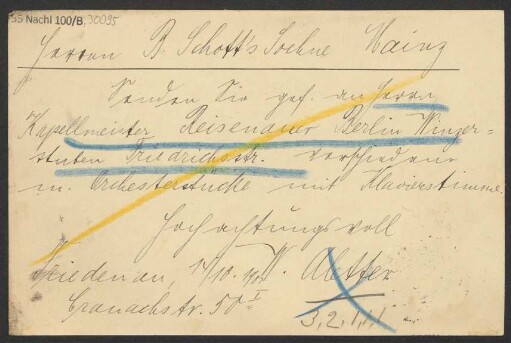 55 Nachl 100/B, 30095
Herren B. Schott's Soehne Mainz
Senden Sie gef. an Herrn
Kapellmeister Reisenauer Berlin Winzer-
stuben Friedrichstr. verschiedene
m. Orchesterstücke mit Klavierstimme
Hochachtungsvoll
W. Aletter
Friedenau, 14/10.
Cranachstr. 50 I
3, 2, 1, 1